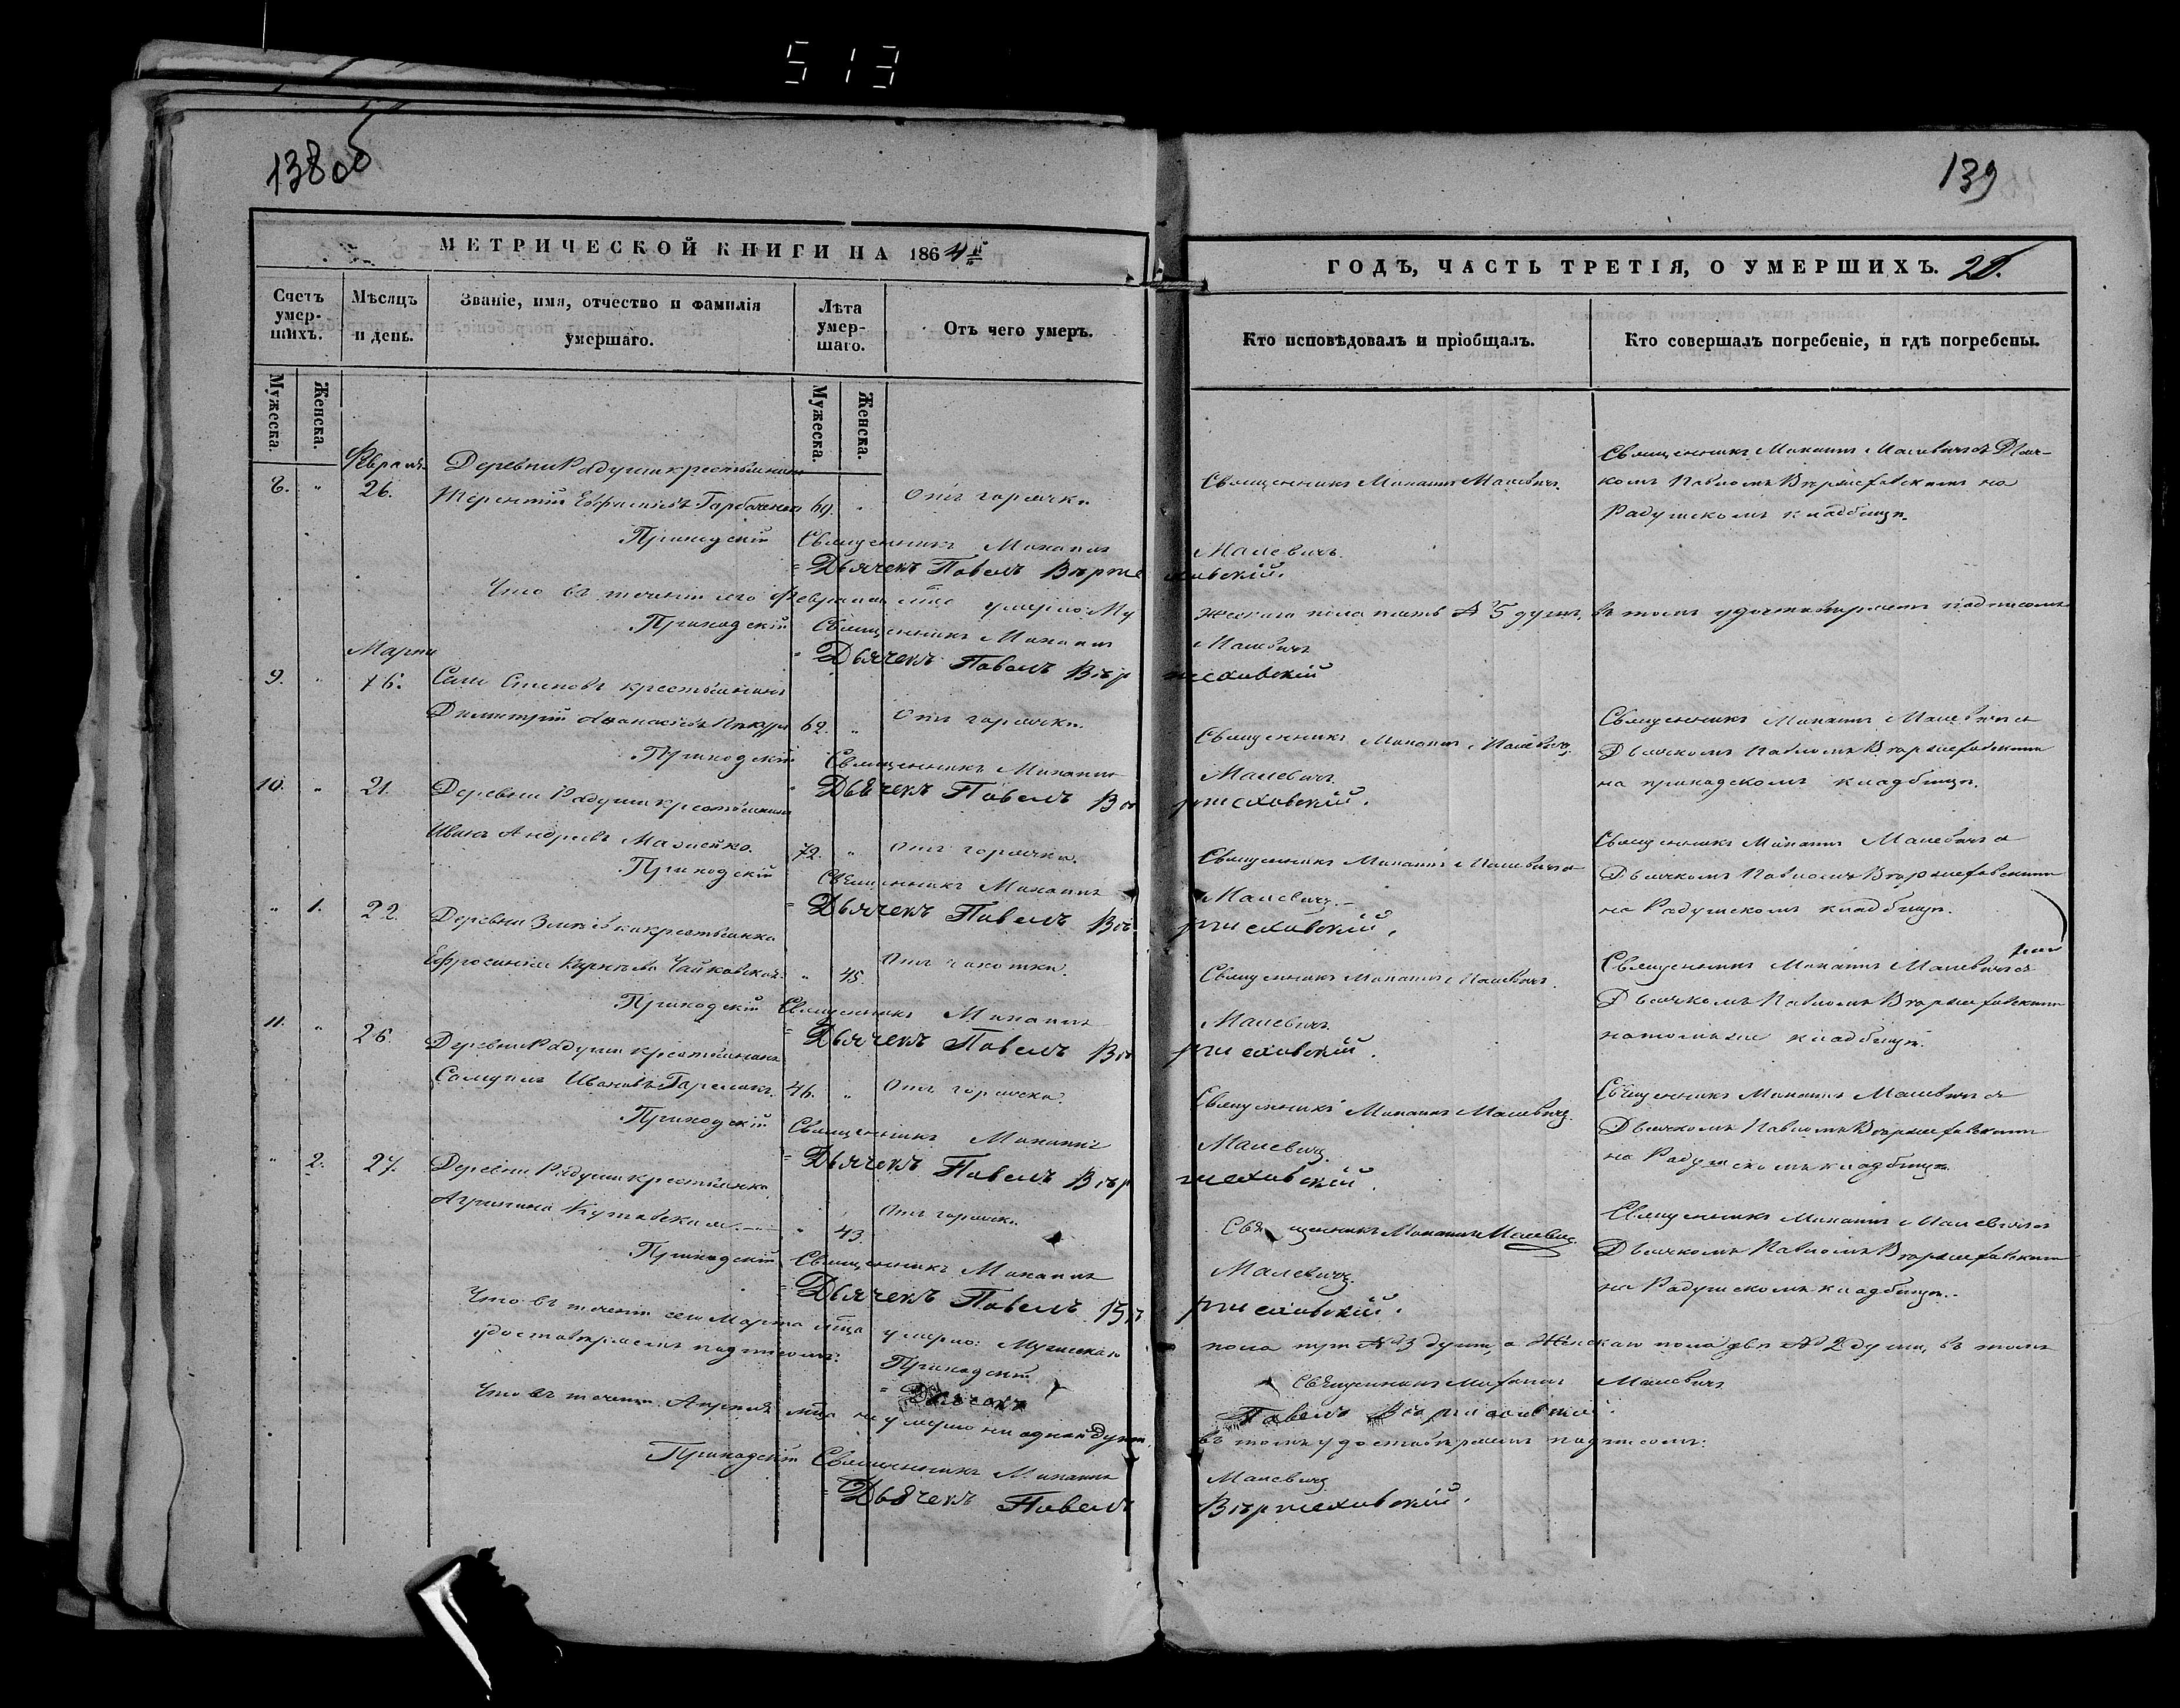 513
138 об
139
МЕТРИЧЕСКОЙ КНИГИ НА 1864й
ГОДЪ, ЧАСТЬ ТРЕТІЯ, О УМЕРШИХЪ.
Счетъ умер-шихъ.
Мѣсяцъ и день.
Званіе, имя, отчество и фамилія умершаго.
Лѣта умер-шаго.
Отъ чего умеръ.
Кто исповѣдовалъ и пріобщалъ.
Кто совершалъ погребеніе, и гдѣ погребены.
Мужеска.
Женска.
Мужеска.
Женска.
Февраль
Деревни Радуши крестьянинъ
8. " 26. Терентій 69. " Отъ горячки
Священникъ Михаилъ Малевичъ.
Священникъ Михаилъ Малевичъ съ Дьяч-
комъ Павломъ на
Радушскомъ кладбищѣ.
Приходскій Священникъ Михаилъ Малевичъ.
Дьячекъ Павелъ
Что въ теченіи сего Февраля мца умерло: Му жескаго пола пять № 5 душъ, въ томъ удостовѣряемъ подписомъ
Приходскій Священникъ Михаилъ Малевичъ
Дьячекъ Павелъ
Марта
9. " 16. крестьянинъ
Димитрій 62. " Отъ горячки.
Священникъ Михаилъ Малевичъ.
Священникъ Михаилъ Малевичъ съ
Дьячкомъ Павломъ
на приходскомъ кладбищѣ.
Приходскій Священникъ Михаилъ Малевичъ.
Дьячекъ Павелъ
10. " 21. Деревни Радуши крестьянинъ
Иванъ Андреевъ 72. " Отъ горячки.
Священникъ Михаилъ Малевичъ
Священникъ Михаилъ Малевичъ съ
Дьячкомъ Павломъ
на Радушскомъ кладбищѣ.
Приходскій Священникъ Михаилъ Малевичъ.
Дьячекъ Павелъ
" 1. 22. Деревни крестьянка
Ефросинія Чайковская " 45. Отъ чахотки.
Священникъ Михаилъ Малевичъ.
Священникъ Михаилъ Малевичъ съ
Дьячкомъ Павломъ
на томъ же кладбищѣ.
Приходскій Священникъ Михаилъ Малевичъ.
Дьячекъ Павелъ
11. " 26. Деревни Радуши крестьянинъ
Самуилъ Ивановъ 46. " Отъ горячки.
Священникъ Михаилъ Малевичъ.
Священникъ Михаилъ Малевичъ съ
Дьячкомъ Павломъ
на Радушскомъ кладбищѣ.
Приходскій Священникъ Михаилъ Малевичъ.
Дьячекъ Павелъ
" 2. 27. Деревни Радуши крестьянка
" 43. Отъ горячки
Священникъ Михаилъ Малевичъ.
Священникъ Михаилъ Малевичъ съ
Дьячкомъ Павломъ
на Радушскомъ кладбищѣ.
Приходскій Священникъ Михаилъ Малевичъ.
Дьячекъ Павелъ
Что въ теченіи сего Марта мца умерло: Мужескаго пола три № 3 души, а Женскаго пола двѣ № 2 души, въ томъ
удостовѣряемъ подписомъ:
Приходскій Священникъ Михаилъ Малевичъ
Дьячекъ Павелъ
Что въ теченіи Апреля мца не умерло ни одной души, въ томъ удостовѣряемъ подписомъ:
Приходскій Священникъ Михаилъ Малевичъ
Дьячекъ Павелъ